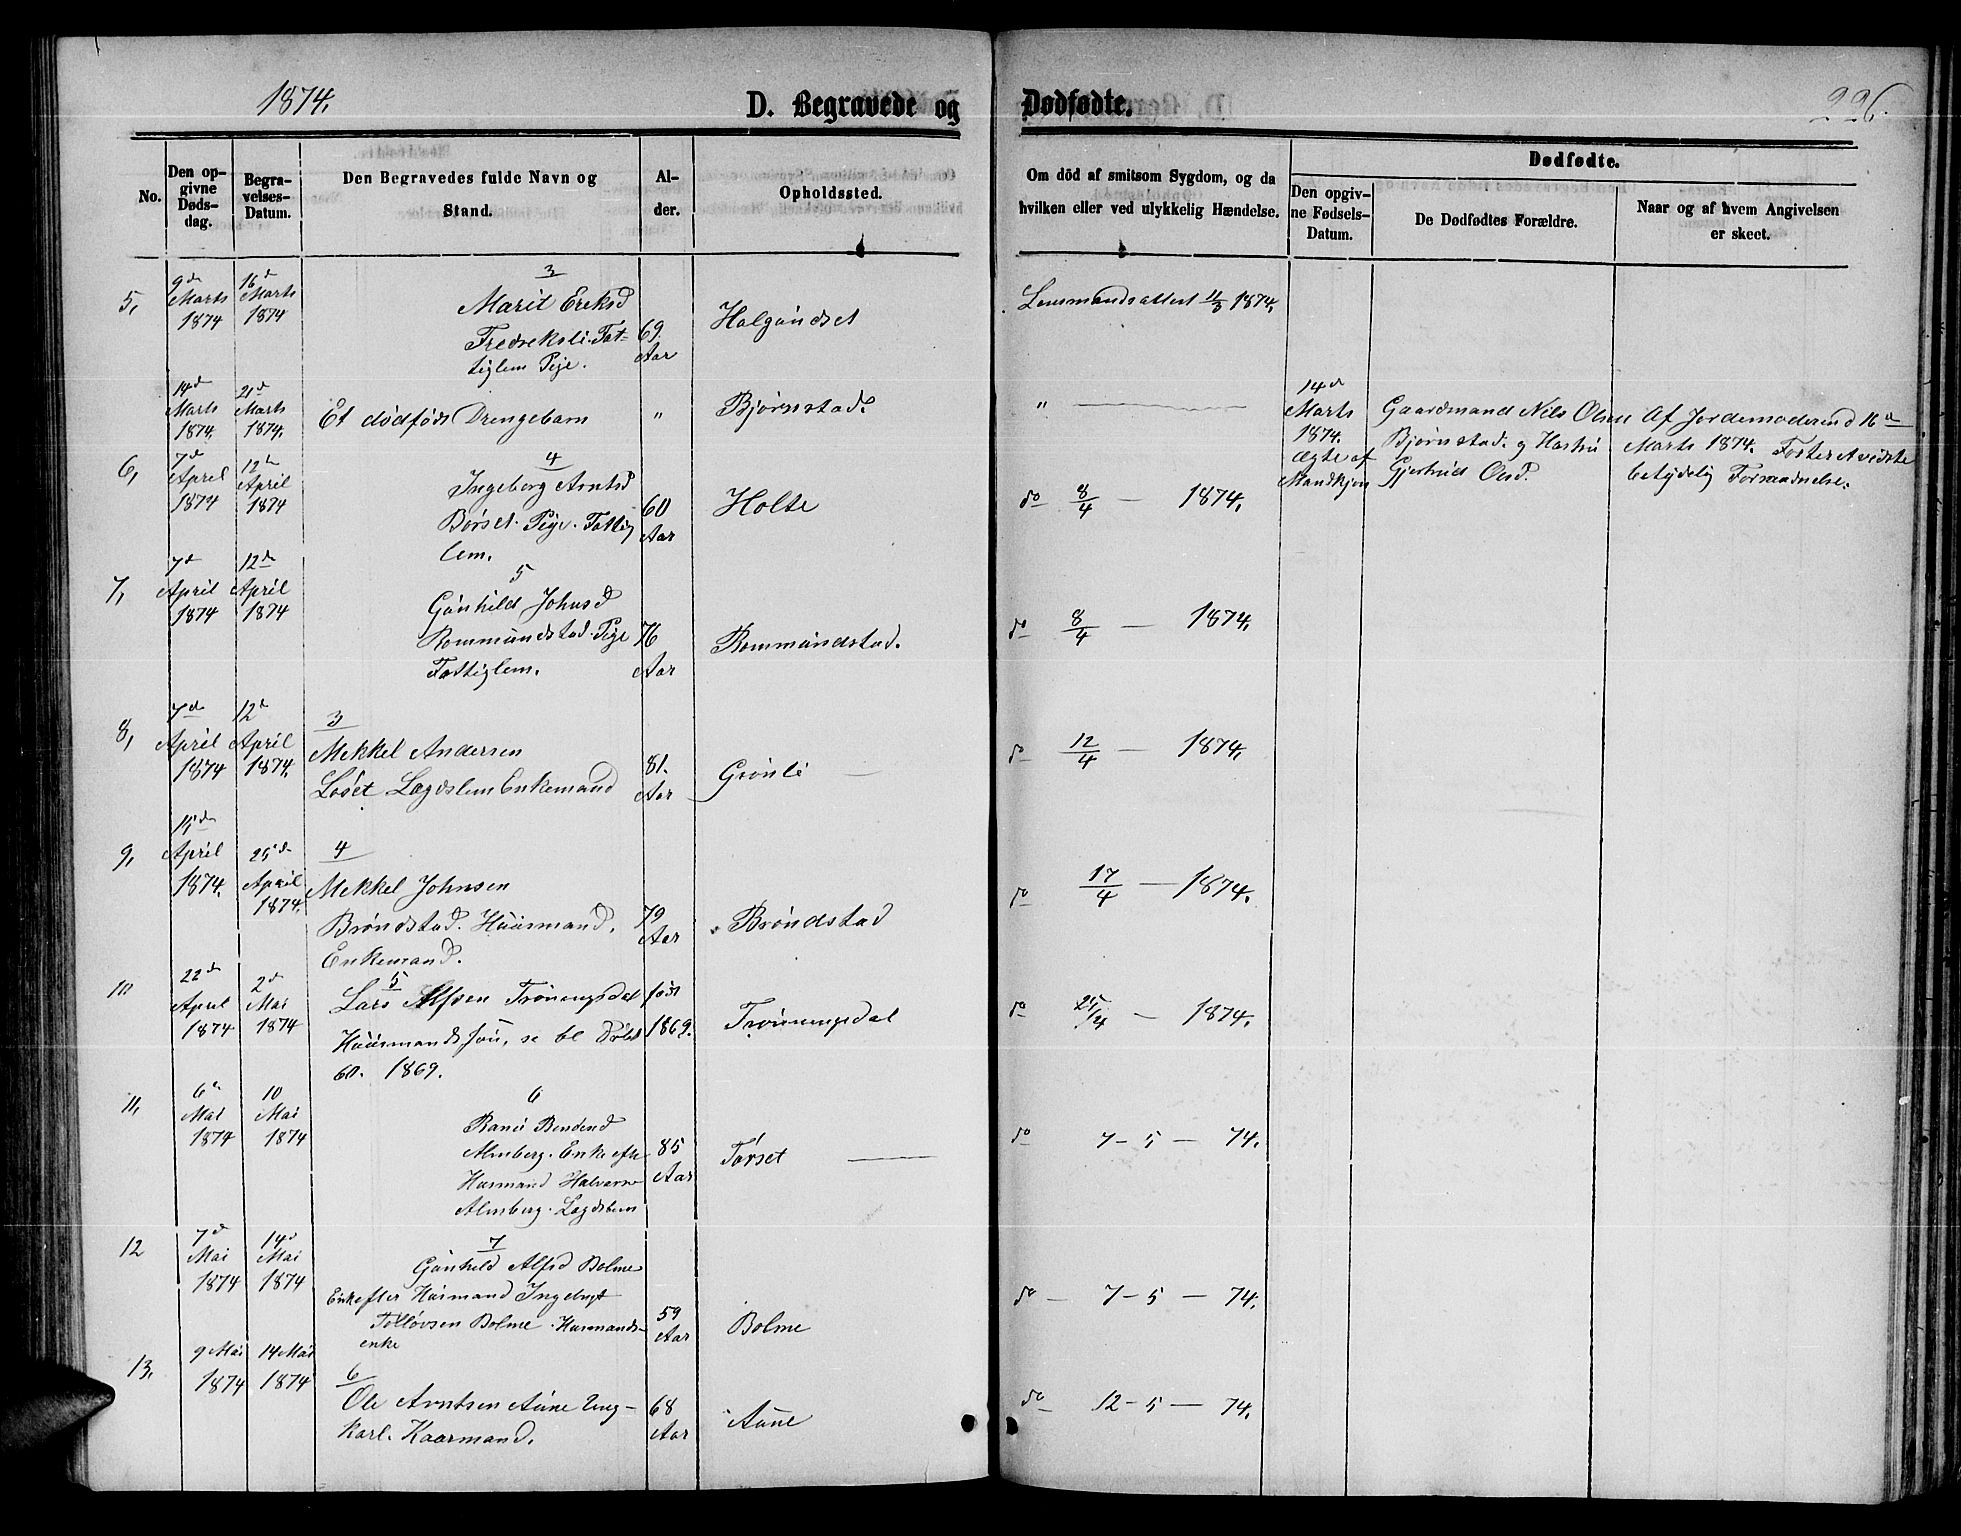 1874.
D. Begravede og
Dødfødte.
226.
No.
Den op-
givne
Døds-
dag.
Begra-
velses-
Datum.
Den Begravedes fulde Navn og
Stand.
Al-
der.
Opholdssted.
Om død af smitsom Sygdom, og da
hvilken eller ved ulykkelig Hændelse.
Dødfødte.
Den opgiv-
ne Fødsels-
Datum.
De Dødfødtes Forældre.
Naar og af hvem Angivelsen
er skeet.
5,
9de
Marts
1874
16de
Marts
1874
3
Marit Ereksd
Fredreksli. Fat-
tiglem Pige.
69.
Aar
Halgundset
Lensmandsattest 11/3 1874.
14de
Marts
1874.
21de
Marts
1874.
Et dødfødt Drengebarn
"
Bjørnstad.
"
14de
Marts
1874.
ægte af
Mandkjøn
Gaardmand Nils Olsen
Bjørnstad. og Hustru
Gjertrud Olsd.
Af Jordemoderen d 16de
Marts 1874. Fosteret vidste
betydelig Forraadnelse.
6,
7de
April
1874
12te
April
1874
4
Ingeborg Arntsd
Børset. Pige. Fattig
lem.
60
Aar
Holte
do 8/4 — 1874.
7,
7de
April
1874
12te
April
1874
5
Gunhild Johnsd
Rommundstad. Pige
Fattiglem.
76
Aar
Rommundstad.
do 8/4 — 1874.
8,
7de
April
1874
12te
April
1874.
3
Mekkel Andersen
Løset Lægdslem Enkemand
81.
Aar
Grønli
do 12/4 — 1874.
9,
15de
April
1874.
25de
April
1874.
4
Mekkel Johnsen
Brøndstad. Huusmand.
Enkemand.
79
Aar
Brøndstad
do 17/4 — 1874.
10
22de
April
1874
2de
Mai
1874
5
Lars Alfsen Trøenengsdal
Huusmandssøn, se bl Døbte
60. 1869.
født
1869.
Trønengsdal
do 25/4 — 1874.
11,
6te
Mai
1874
10
Mai
1874
6
Ranei Bendend
Almberg. Enke efter
Husmand Halvor
Almberg. Lægdslem
85
Aar
Torset
do 7 – 5 — 74.
12
7de
Mai
1874
14de
Mai
1874
7
Gunhild Alfsd Bolme
Enke efter Husmand Ingebrgt
Tolløvsen Bolme. Husmands-
enke
59
Aar
Bolme
do — 7 – 5 — 74.
13,
9 Mai
1874
14 Mai
1874
6
Ole Arntsen Aune Ung-
karl. Kaarmand.
68
Aar
Aune
do 12 – 5 — 74.